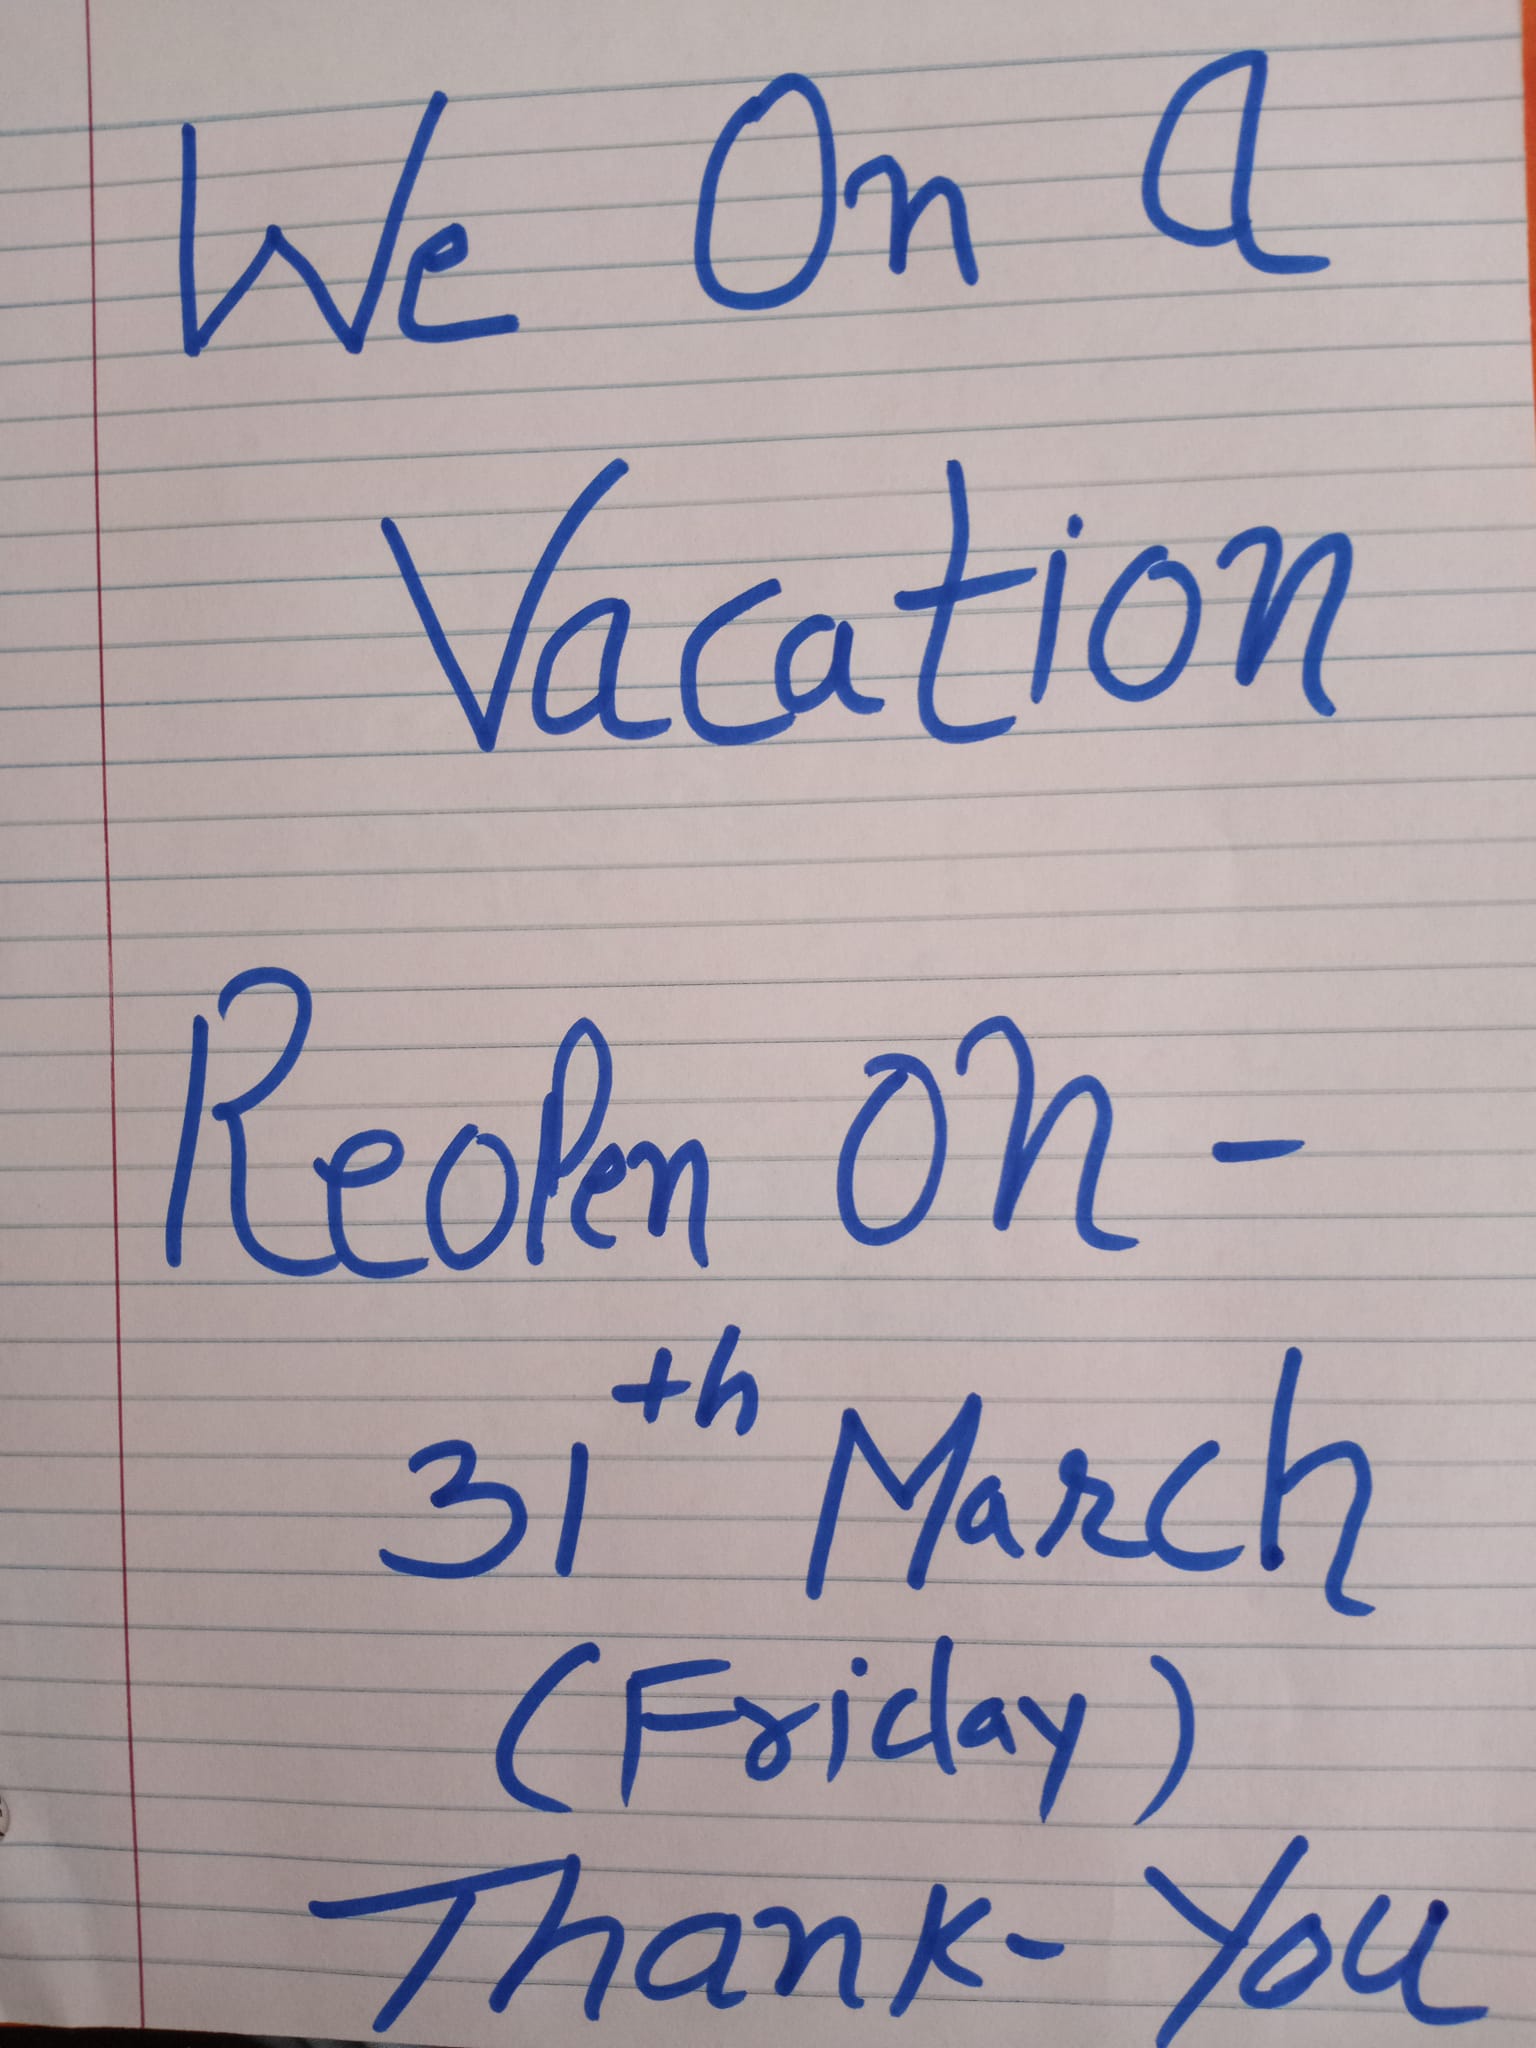 We On a
Vacation
Reopen on -
31th March
(Friday)
Thank-You